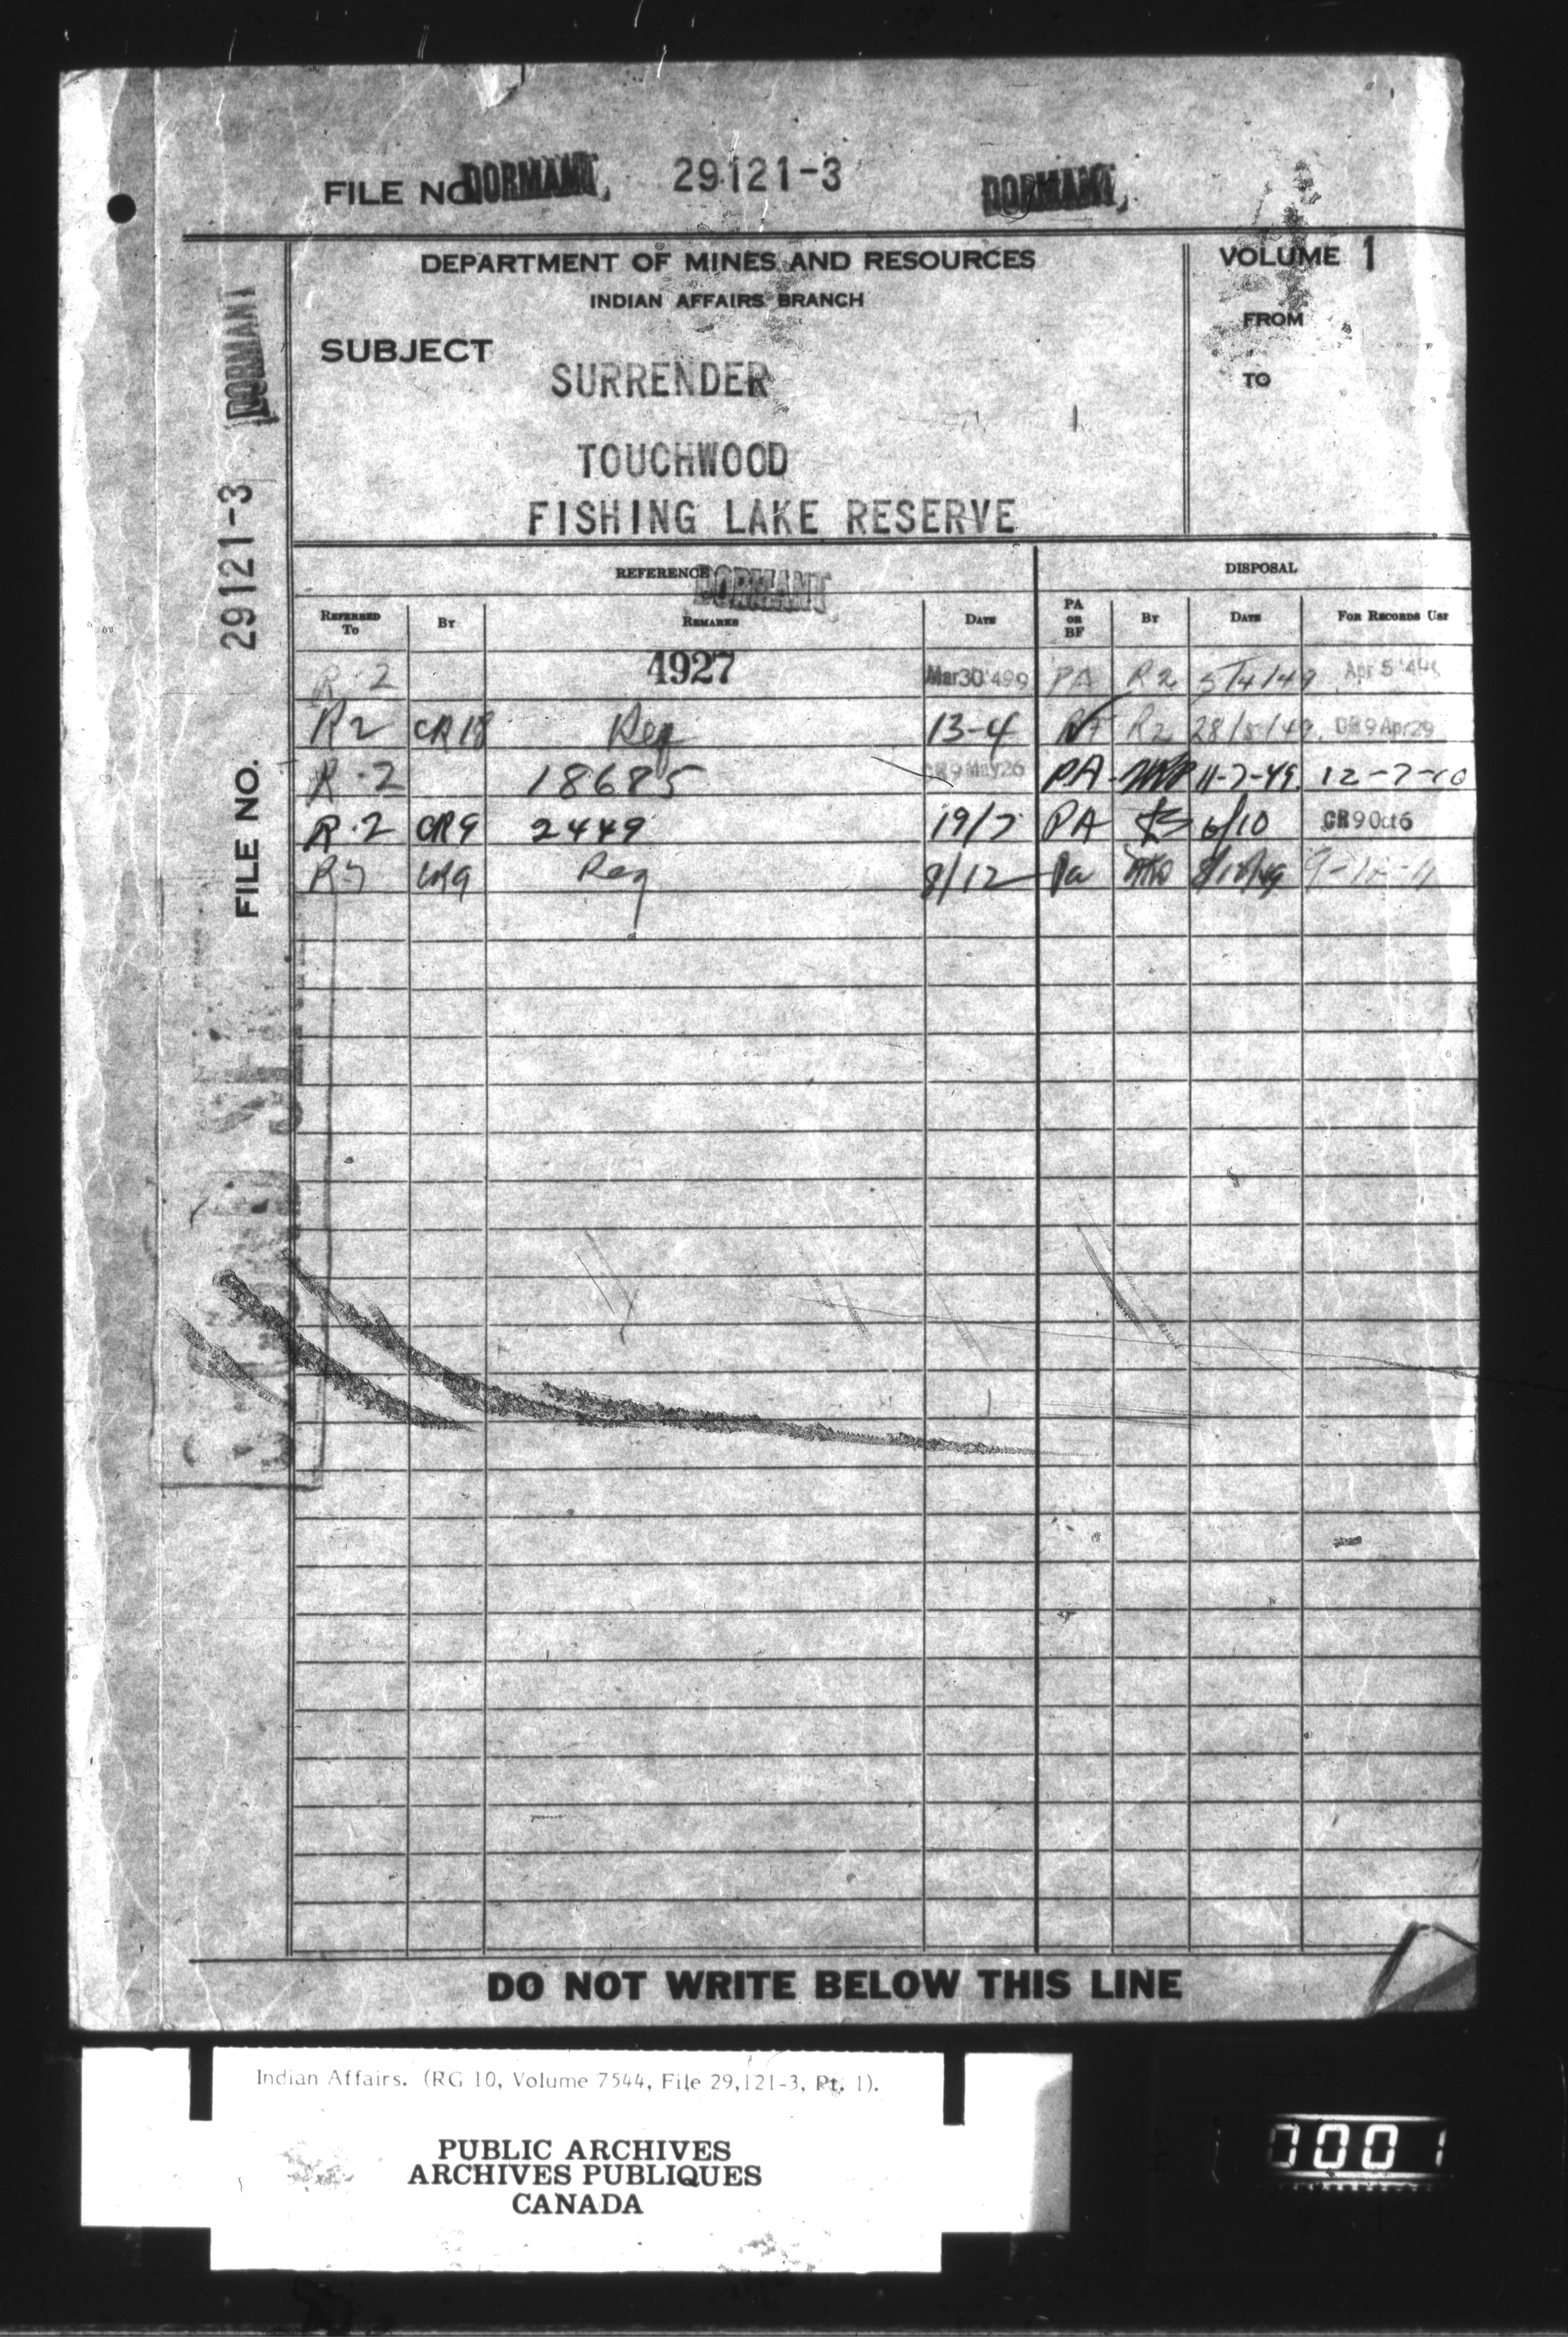 FILE NO. DORMANT, 29121-3 DORMANT,
DEPARTMENT OF MINES AND RESOURCES
INDIAN AFFAIRS BRANCH
VOLUME 1
FROM
TO
SUBJECT
SURRENDER
TOUCHWOOD
FISHING LAKE RESERVE
FILE NO. 29121-3 DORMANT
REFERENCE DORMANT DISPOSAL
REFERRED TO BY REMARKS DATE PA OR BF BY DATE FOR RECORDS USE
R 2 4927 Mar 30 '49 PA R2 5/4/49
R2 CR18 Req 13-4 R2
R-2 18685 CR9 May 26 PA 11-7-49.
R-2 CR9 2449 19/7 PA 6/10 CR9 Oct 6
CR9 Req 8/12 Pa
DO NOT WRITE BELOW THIS LINE
Indian Affairs. (RG 10, Volume 7544, File 29,121-3, Pt. 1).
PUBLIC ARCHIVES
ARCHIVES PUBLIQUES
CANADA
0001